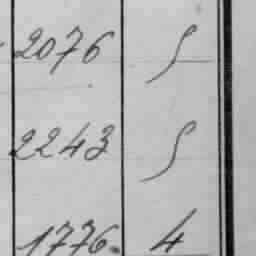 2076 S
2243 S
1776. 4